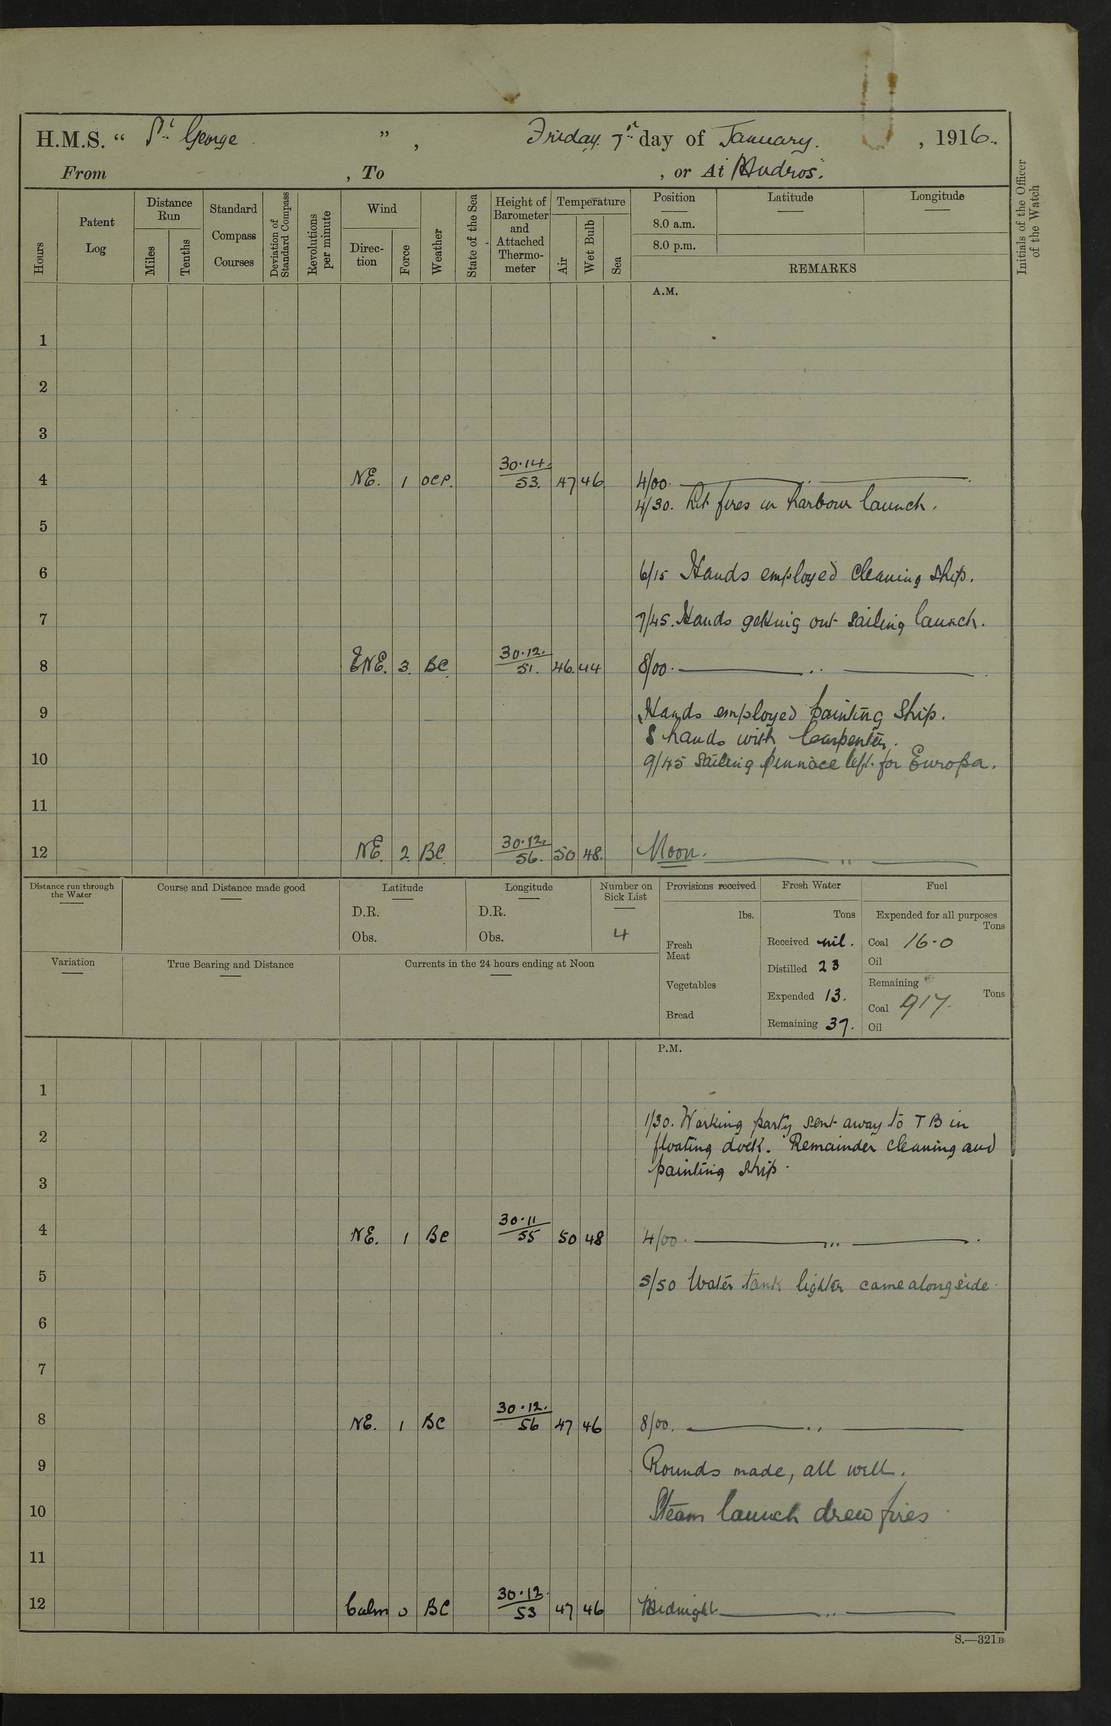 H.M.S. " St George ", Friday 7th day of January, 1916.
From , To , or At Mudros.
Hours
Patent Log
Distance Run
Miles
Tenths
Standard Compass Courses
Deviation of Standard Compass
Revolutions per minute
Wind
Direction
Force
Weather
State of the Sea
Height of Barometer and Attached Thermometer
Temperature
Air
Wet Bulb
Sea
Position Latitude Longitude
8.0 a.m.
8.0 p.m.
REMARKS
Initials of the Officer of the Watch
A.M.
1
2
3
4 NE. 1 OCP. 30.14./53. 47 46 4/00.
4/30. Lit fires in harbour launch.
5
6 6/15 Hands employed cleaning ship.
7 7/45. Hands getting out sailing launch.
8 ENE. 3. BC. 30.12./51. 46. 44 8/00.
9 Hands employed painting ship.
8 hands with Carpenter.
10 9/45 Sailing pinnace left for Europa.
11
12 NE. 2. BC. 30.12./56. 50 48. Noon.
Distance run through the Water
Course and Distance made good
Latitude
Longitude
Number on Sick List
Provisions received
Fresh Water
Fuel
D.R. D.R.
Obs. Obs. 4
lbs. Tons
Expended for all purposes Tons
Fresh Meat
Received nil. Coal 16-0
Distilled 23 Oil
Variation
True Bearing and Distance
Currents in the 24 hours ending at Noon
Vegetables
Expended 13. Remaining Tons
Coal 917.
Bread
Remaining 37. Oil
P.M.
1
1/30. Working party sent away to TB in
2 floating dock. Remainder cleaning and
painting ship.
3
4 NE. 1 BC 30.11/55 50 48 4/00.
5 5/50 Water tank lighter came alongside.
6
7
8 NE. 1 BC 30.12./56 47 46 8/00.
9 Rounds made, all well.
10 Steam launch drew fires
11
12 Calm 0 BC 30.12./53 47 46 Midnight
S.—321B